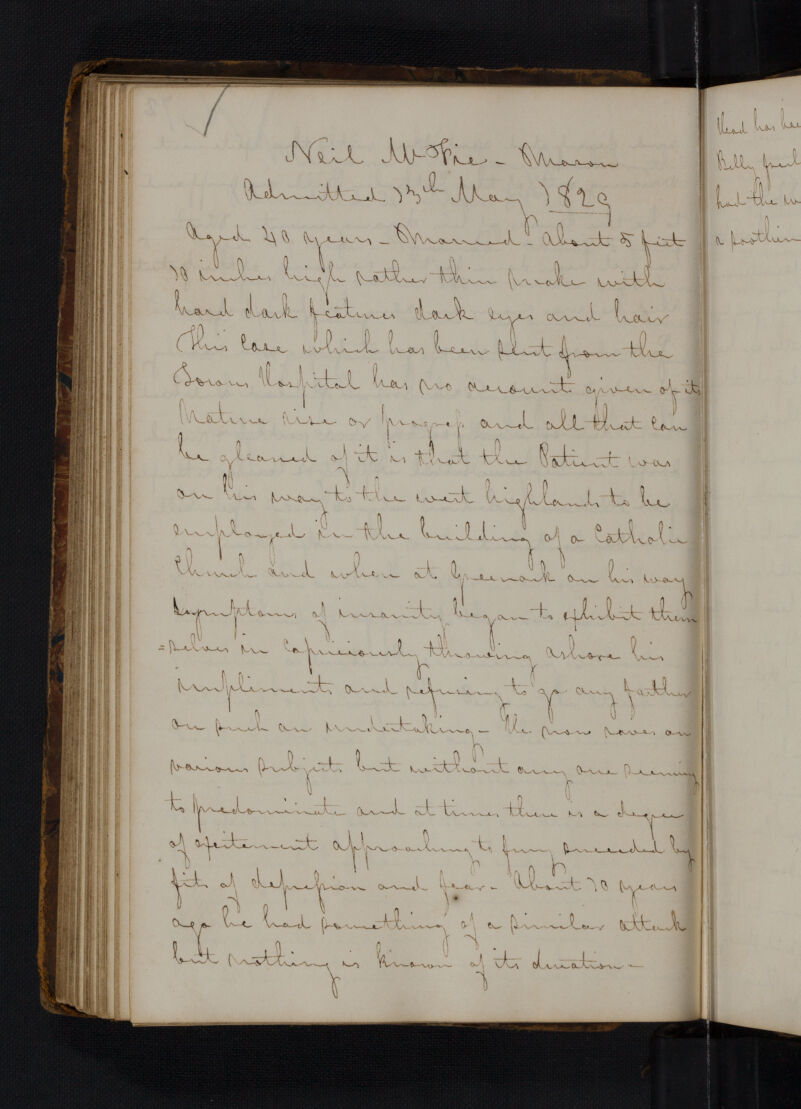 Neil McFie - Mason
Admitted 13th May 1829
Aged 40 years - Married - About 5 feet
10 inches high rather thin make with
hard dark features dark eyes and hair
This Case which has been sent from the
Towns Hospital has no account given of its
Nature rise or progress and all that can
be gleaned of it is that the Patient was
on his way to the west highlands to be
employed in the building of a Catholic
Church and when at Greenock on his way
Symptoms of insanity began to exhibit them
=selves in Capriciously throwing ashore his
impliments and refusing to go any farther
on such an undertaking - He now raves on
various Subjects but without any one seeming
to predominate and at times there is a degree
of excitement approaching to fury succeeded by
fits of depression and fear - About 10 years
ago he had something of a similar attack
but nothing is known of its duration -
Head has
Belly
had the
a